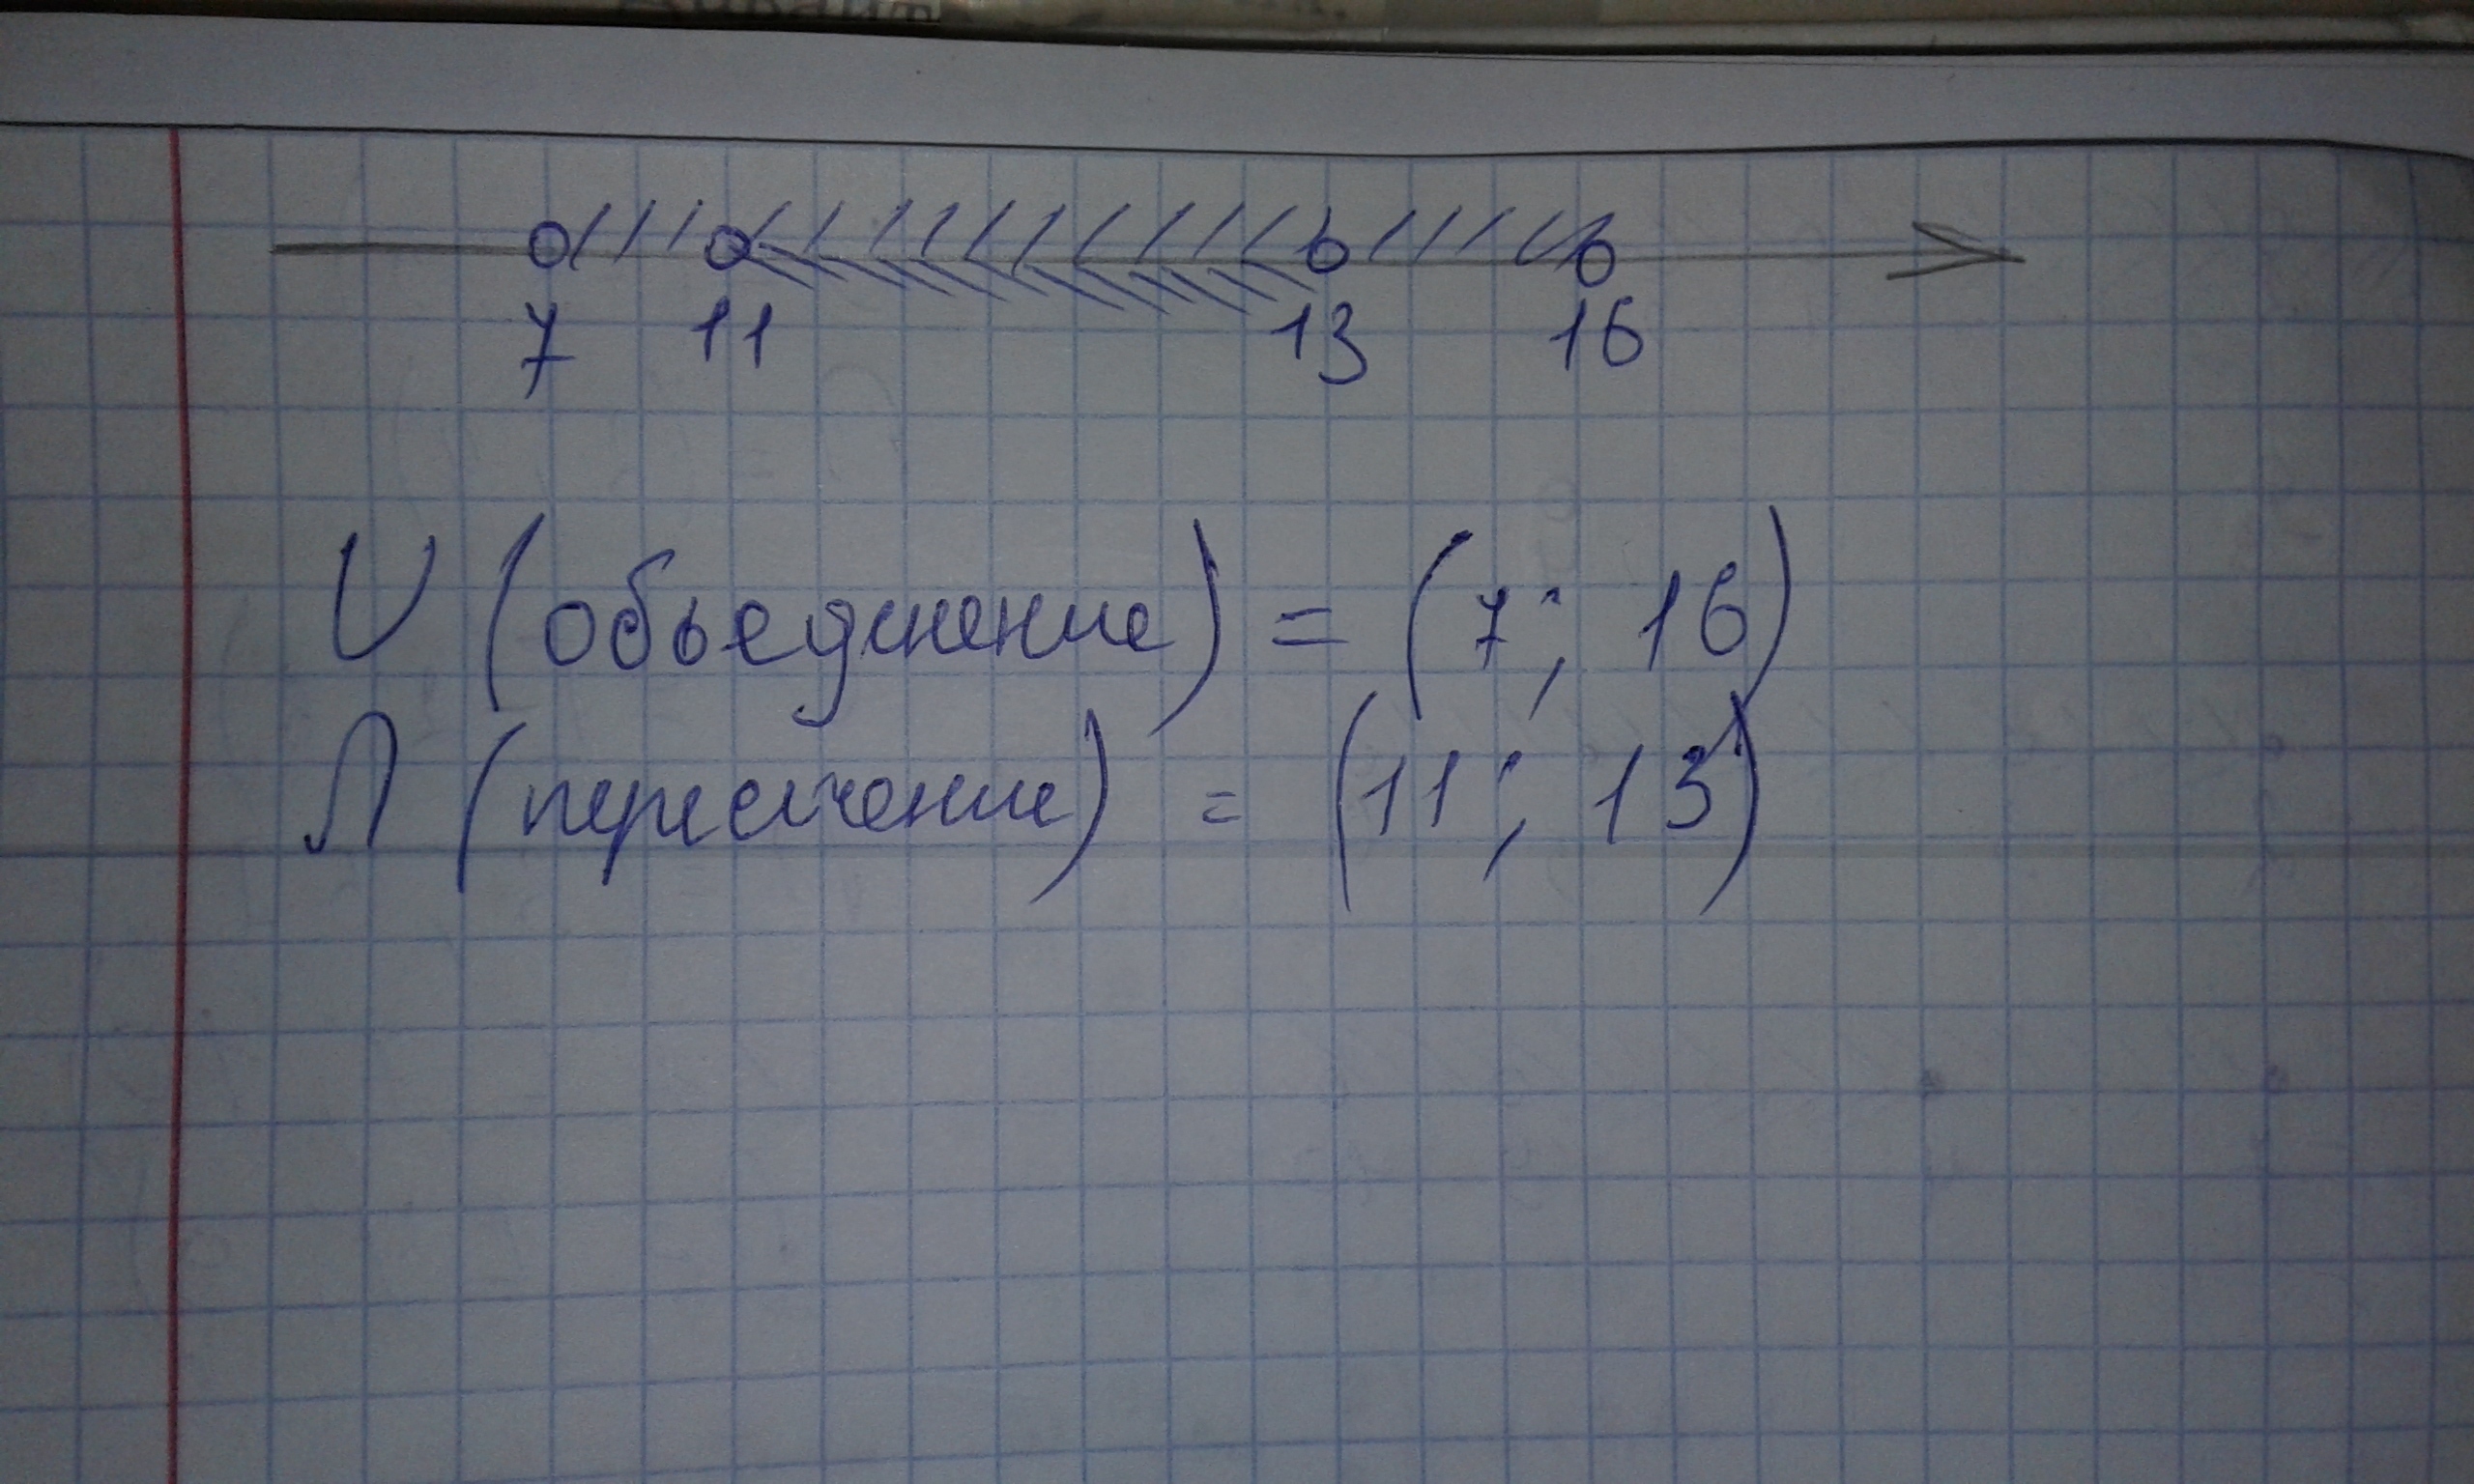 7 11 13 16
U (обьединение) = (7; 16)
∩ (пересичение) = (11; 13)